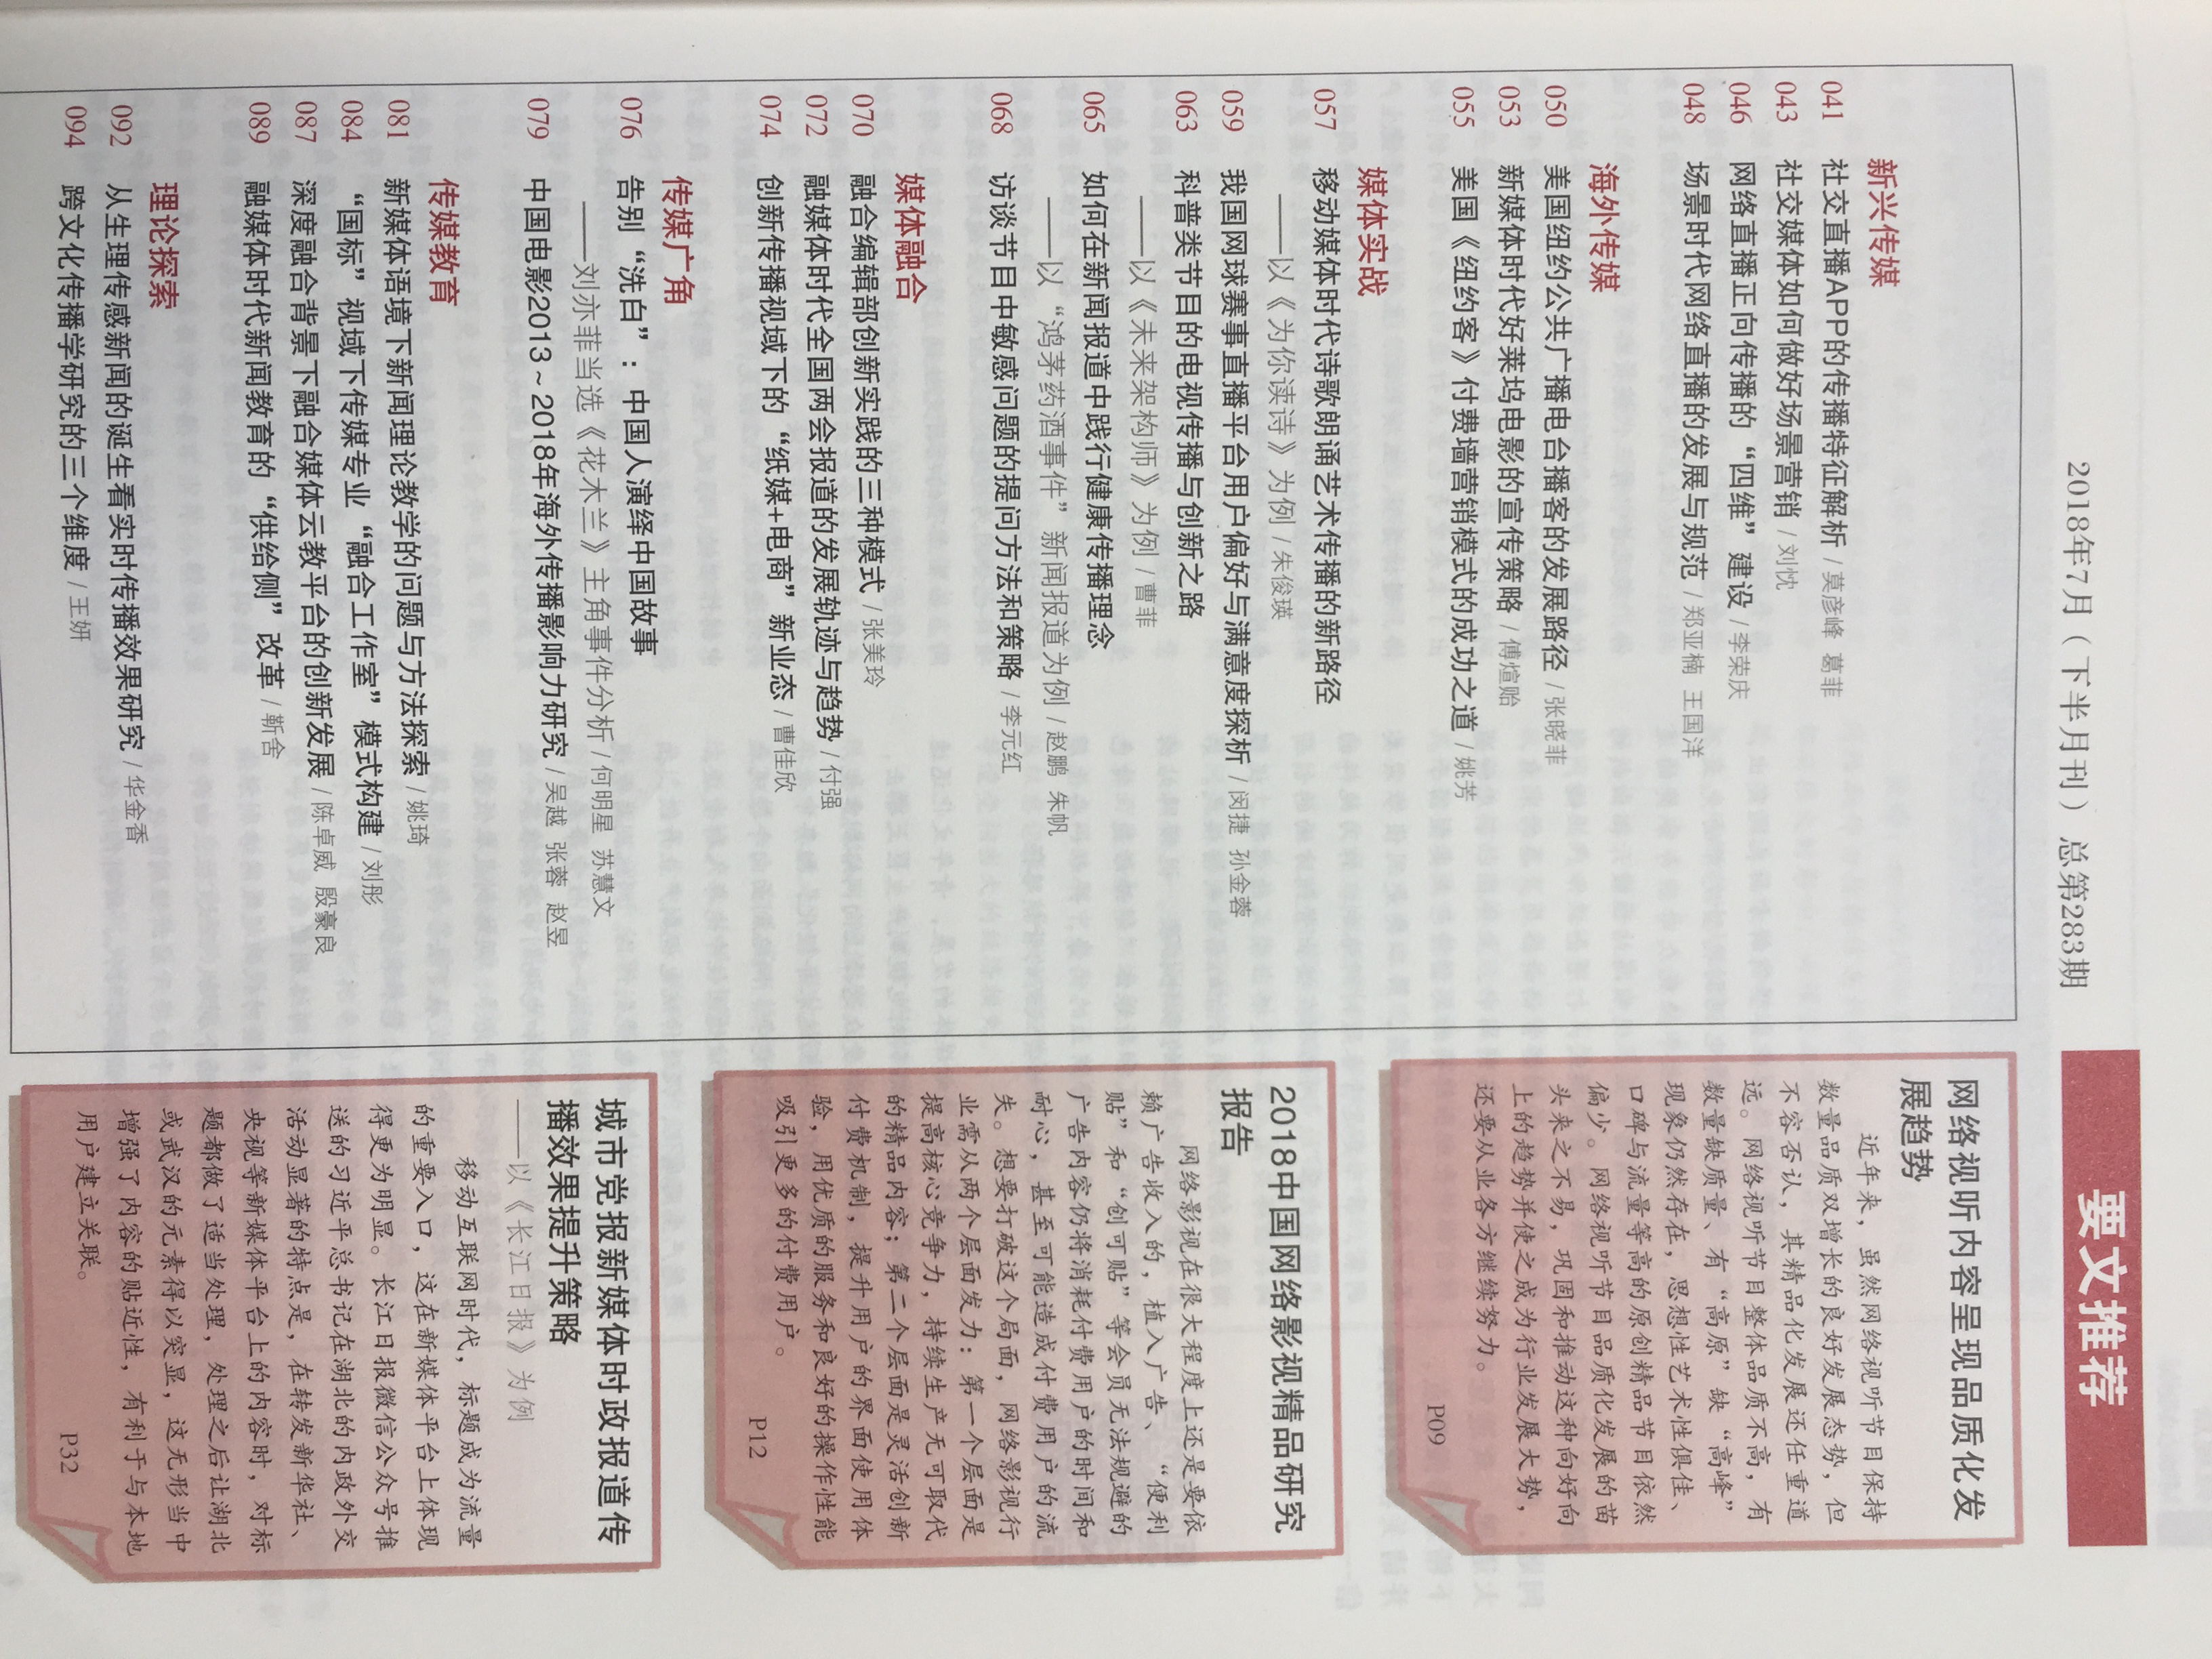 2018年7月（下半月刊）总第283期
要文推荐
新兴传媒
041 社交直播APP的传播特征解析 / 莫彦峰 葛菲
043 社交媒体如何做好场景营销 / 刘忱
046 网络直播正向传播的“四维”建设 / 李荣庆
048 场景时代网络直播的发展与规范 / 郑亚楠 王国洋
海外传媒
050 美国纽约公共广播电台播客的发展路径 / 张晓菲
053 新媒体时代好莱坞电影的宣传策略 / 傅煊贻
055 美国《纽约客》付费墙营销模式的成功之道 / 姚芳
媒体实战
057 移动媒体时代诗歌朗诵艺术传播的新路径
——以《为你读诗》为例 / 朱俊瑛
059 我国网球赛事直播平台用户偏好与满意度探析 / 闵捷 孙金蓉
063 科普类节目的电视传播与创新之路
——以《未来架构师》为例 / 曹菲
065 如何在新闻报道中践行健康传播理念
——以“鸿茅药酒事件”新闻报道为例 / 赵鹏 朱帆
068 访谈节目中敏感问题的提问方法和策略 / 李元红
媒体融合
070 融合编辑部创新实践的三种模式 / 张美玲
072 融媒体时代全国两会报道的发展轨迹与趋势 / 付强
074 创新传播视域下的“纸媒+电商”新业态 / 曹佳欣
传媒广角
076 告别“洗白”：中国人演绎中国故事
——刘亦菲当选《花木兰》主角事件分析 / 何明星 苏慧文
079 中国电影2013~2018年海外传播影响力研究 / 吴越 张蓉 赵昱
传媒教育
081 新媒体语境下新闻理论教学的问题与方法探索 / 姚琦
084 “国标”视域下传媒专业“融合工作室”模式构建 / 刘彤
087 深度融合背景下融合媒体云教平台的创新发展 / 陈卓威 殷豪良
089 融媒体时代新闻教育的“供给侧”改革 / 靳舍
理论探索
092 从生理传感新闻的诞生看实时传播效果研究 / 华金香
094 跨文化传播学研究的三个维度 / 王妍
网络视听内容呈现品质化发
展趋势
近年来，虽然网络视听节目保持
数量品质双增长的良好发展态势，但
不容否认，其精品化发展还任重道
远。网络视听节目整体品质不高，有
数量缺质量、有“高原”缺“高峰”
现象仍然存在，思想性艺术性俱佳、
口碑与流量等高的原创精品节目依然
偏少。网络视听节目品质化发展的苗
头来之不易，巩固和推动这种向好向
上的趋势并使之成为行业发展大势，
还要从业各方继续努力。
P09
2018中国网络影视精品研究
报告
网络影视在很大程度上还是要依
赖广告收入的，植入广告、“便利
贴”和“创可贴”等会员无法规避的
广告内容仍将消耗付费用户的时间和
耐心，甚至可能造成付费用户的流
失。想要打破这个局面，网络影视行
业需从两个层面发力：第一个层面是
提高核心竞争力，持续生产无可取代
的精品内容；第二个层面是灵活创新
付费机制，提升用户的界面使用体
验，用优质的服务和良好的操作性能
吸引更多的付费用户。
P12
城市党报新媒体时政报道传
播效果提升策略
——以《长江日报》为例
移动互联网时代，标题成为流量
的重要入口，这在新媒体平台上体现
得更为明显。长江日报微信公众号推
送的习近平总书记在湖北的内政外交
活动显著的特点是，在转发新华社、
央视等新媒体平台上的内容时，对标
题都做了适当处理，处理之后让湖北
或武汉的元素得以突显，这无形当中
增强了内容的贴近性，有利于与本地
用户建立关联。
P32